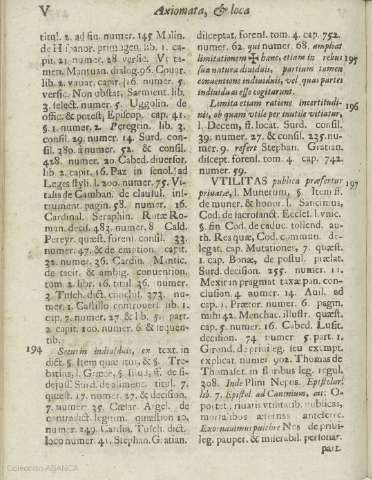 V Axiomata, & loca
titul. 2. ad fin. numer. 145 Molin.
de Hispanor. primogen. lib. 1. ca-
pit. 21. numer. 28 versic. Vt ta-
men. Mantuan. dialog. 96. Couar.
lib. 2. variar. capit. 16. numer. 5.
versic. Non obstat, Sarmient. lib.
3. select. numer. 5. Uggolin. de
offic. & potest. Episcop. cap. 41
§. 1. numer. 2. Peregrin. lib. 3.
consil. 29. numer. 14. Surd. con-
sil. 380. a numer. 52. & consil.
428. numer. 20. Cabed. diuersor.
lib. 2. capit. 16. Paz in senol. ad
Leges styli, l. 200. numer. 75. Vi-
talis de Camban. de clausul. ins-
trument. pagin. 58. numer. 16.
Cardinal. Seraphin. Rotæ Ro-
man. decis. 483. numer. 8 Cald
Pereyr. quæst. forens. consil. 33.
numer. 47. & de emption. capit.
32. numer. 26. Cardin. Mantic.
de tacit. & ambig. conuention.
tom 2. lib. 16. titul. 36. numer.
3. Tusch. dict. conclus. 373. nu-
mer. 1. Castillo controuers. lib. 1.
cap. 7. numer. 27. & lib. 5. part.
2. capit. 100. numer. 6. & sequen-
tib.
194 Secus in indiuisibili, ex text. in
dict. §. Item quæ tot. & §. Tre-
bellius, l. Græce, §. Illud, ff. de fi-
deiuss. Surd. de aliment. titul. 7.
quæst. 17. numer. 27. & decision.
7. numer. 35. Cælar. Argel. de
contradict. legitim. quæstion 10.
numer. 249. Cardin. Tusch. dict.
loco numer. 41. Stephan. Gratian.
disceptat. forens. tom. 4. cap. 752.
numer. 62. qui numer. 68. ampliat
limitationem hanc, etiam in rebus 195
sua natura diuiduis, partium tamen
conuentione indiuiduis, vel quas partes
indiuiduas esse cogitarunt.
Limita etiam ratione incertitudi- 196
nis, ob quam vtile per inutile vitiatur,
l. Decem, ff. locat. Surd. consil.
39. numer. 27. & consil. 235. nu-
mer. 9. refert Stephan. Gratian.
discept. forens. tom. 4. cap. 742.
numer. 59.
VTILITAS publica præfertur 197
priuatæ, l. Munerum, §. Item ff.
de muner. & honor. l. Sancimus,
Cod. de sacrosanct. Eccles. l. vnic.
§. fin Cod. de caduc. tollend. au-
th. Res quæ, Cod. commun. de-
legat. cap. Mutationes, 7. quæst.
1. cap. Bonæ, de postul. prælat.
Surd. decision. 255. numer. 11.
Mexia in pragmat. taxæ pan. con-
clusion. 4. numer. 14. Auil. ad
cap. 1. Prætor. numer. 6. pagin.
mihi 42. Menchac. illustr. quæst.
cap. 5. numer. 16. Cabed. Lusit.
decision. 74. numer 5. part. 1.
Girond. de priuileg. seu exempt.
explicat. numer. 902. Thomas de
Thomaset. in floribus leg. regul.
308. Inde Plini Nepos. Epistolar.
lib. 7. Epistol. ad Caninium, ait: O-
portet, priuatis vtilitatib. publicas,
mortalibus æternas anteferre.
Exonauimus pulchre Nos de priui-
leg. pauper. & miserabil. personar.
part.
Colección ABANCA